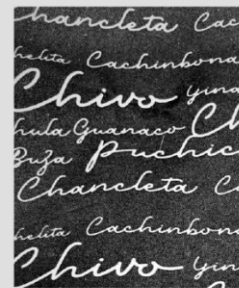 Chancleta Cac
helita Cachinbona
Chivo yina
hula Guanaco Ch
Buza Puchic
Chancleta C
helita Cachinbona
Chivo yin